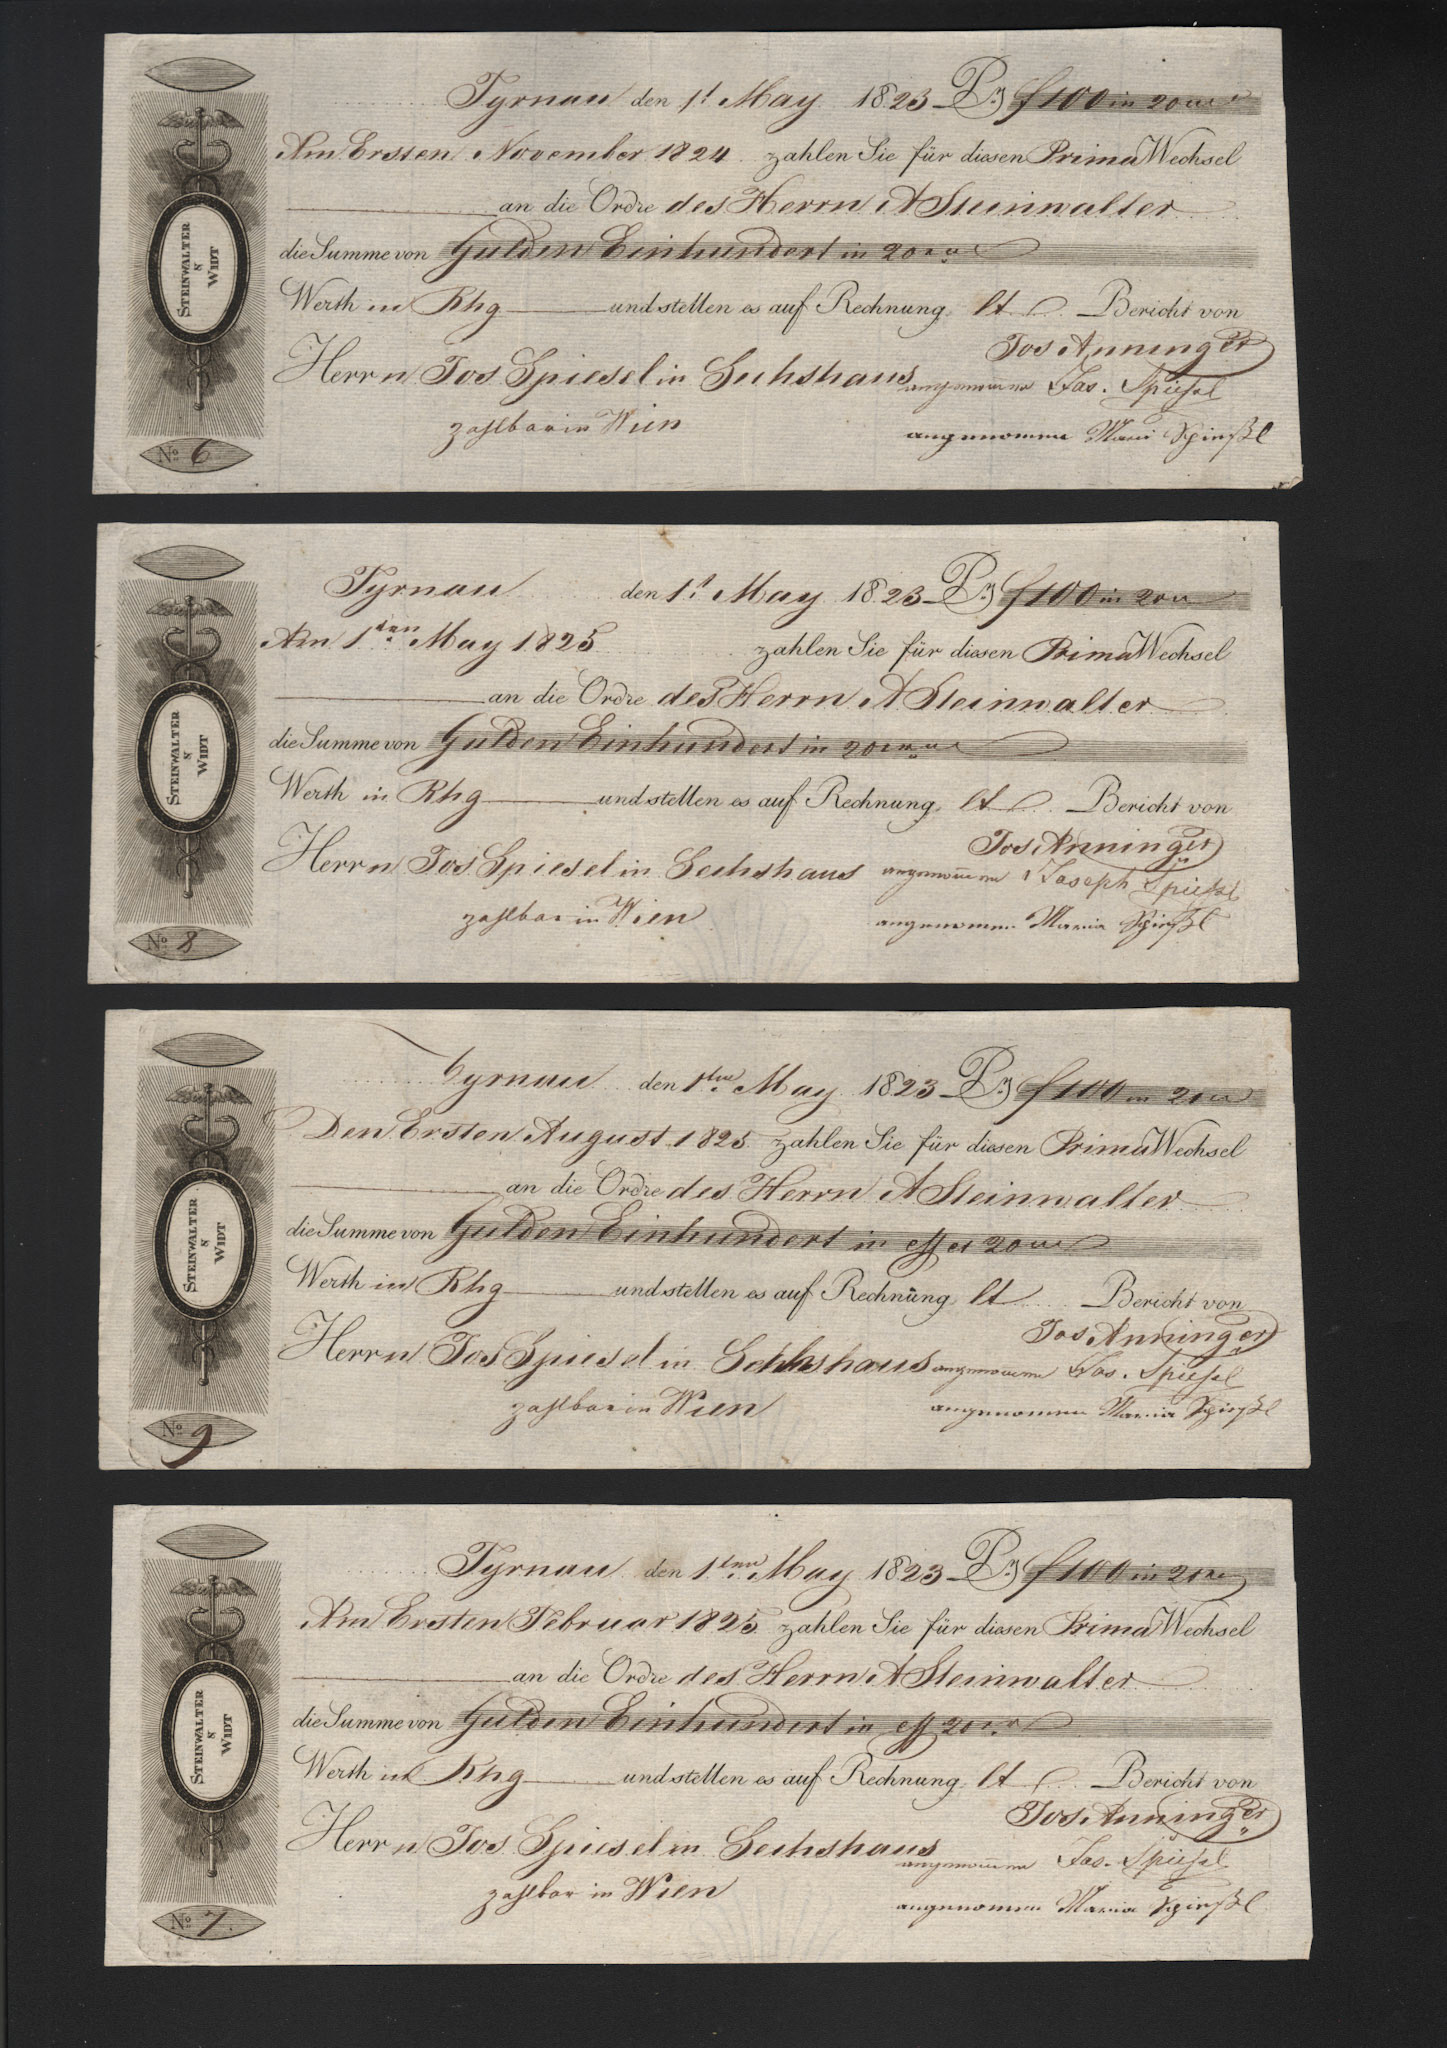 Tyrnau den 1t May 1823 Pr f 100 in 20ern
Am Ersten November 1824 zahlen Sie für diesen Prima Wechsel
an die Ordre des Herrn A Steinwalter
die Summe von Gulden Einhundert in 20ern
Werth in Rhg und stellen es auf Rechnung lt Bericht von
Jos Anninger
Herrn Jos Spiesel in Sechshaus angenommen Jos. Spiesel
zahlbar in Wien angenommen Maria Spießl
STEINWALTER
&
WIDT
No 6
Tyrnau den 1t May 1823 Pr f 100 in 20ern
Am 1ten May 1825 zahlen Sie für diesen Prima Wechsel
an die Ordre des Herrn A Steinwalter
die Summe von Gulden Einhundert in 20ern
Werth in Rhg und stellen es auf Rechnung lt Bericht von
Jos Anninger
Herrn Jos Spiesel in Sechshaus angenommen Joseph Spießl
zahlbar in Wien angenommen Maria Spießl
STEINWALTER
&
WIDT
No 8
Tyrnau den 1ten May 1823 Pr f 100 in 20ern
Den Ersten August 1825 zahlen Sie für diesen Prima Wechsel
an die Ordre des Herrn A Steinwalter
die Summe von Gulden Einhundert in 20ern
Werth in Rhg und stellen es auf Rechnung lt Bericht von
Jos Anninger
Herrn Jos Spiesel in Sechshaus angenommen Jos. Spiesel
zahlbar in Wien angenommen Maria Spießl
STEINWALTER
&
WIDT
No 9
Tyrnau den 1ten May 1823 Pr f 100 in 20ern
Am Ersten Februar 1825 zahlen Sie für diesen Prima Wechsel
an die Ordre des Herrn A Steinwalter
die Summe von Gulden Einhundert in eff 20ern
Werth in Rhg und stellen es auf Rechnung lt Bericht von
Jos Anninger
Herrn Jos Spiesel in Sechshaus angenommen Jos. Spiesel
zahlbar in Wien angenommen Maria Spießl
STEINWALTER
&
WIDT
No 7.